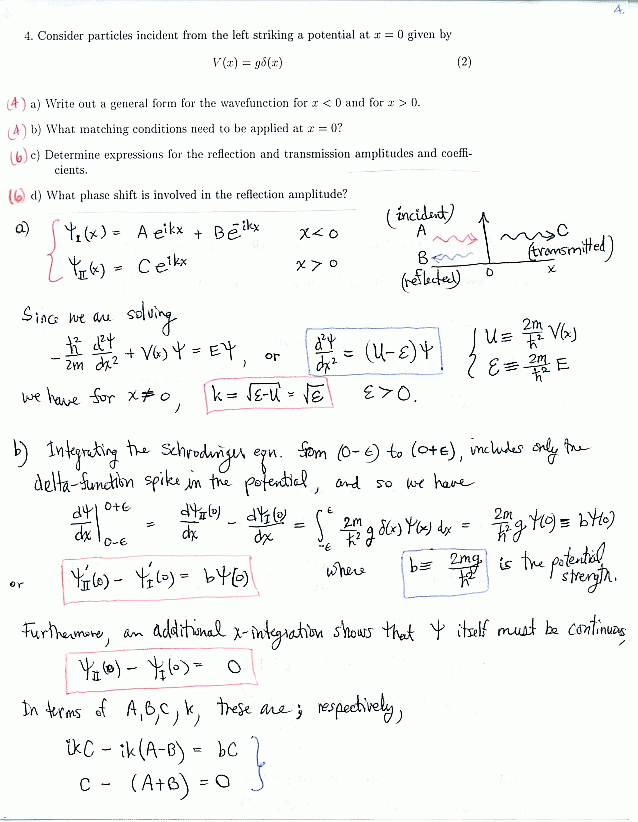 4.
4. Consider particles incident from the left striking a potential at x = 0 given by
V(x) = gδ(x) (2)
(4) a) Write out a general form for the wavefunction for x < 0 and for x > 0.
(4) b) What matching conditions need to be applied at x = 0?
(6) c) Determine expressions for the reflection and transmission amplitudes and coeffi-
cients.
(6) d) What phase shift is involved in the reflection amplitude?
a) { Ψ_I(x) = A e^{ikx} + B e^{-ikx} x < 0
Ψ_II(x) = C e^{ikx} x > 0
(incident)
A C
B (transmitted)
(reflected) 0 x
Since we are solving
-ħ²/2m d²Ψ/dx² + V(x) Ψ = EΨ, or d²Ψ/dx² = (U-ε)Ψ { U ≡ 2m/ħ² V(x)
ε ≡ 2m/ħ² E
we have for x ≠ 0, k = √(ε-U) = √ε ε > 0.
b) Integrating the Schrodinger eqn. from (0-ϵ) to (0+ϵ), includes only the
delta-function spike in the potential, and so we have
dΨ/dx |_{0-ϵ}^{0+ϵ} = dΨ_II(0)/dx - dΨ_I(0)/dx = ∫_{-ϵ}^{ϵ} 2m/ħ² g δ(x) Ψ(x) dx = 2m/ħ² g Ψ(0) ≡ bΨ(0)
or Ψ'_II(0) - Ψ'_I(0) = bΨ(0) where b ≡ 2mg/ħ² is the potential
strength.
Furthermore, an additional x-integration shows that Ψ itself must be continuous
Ψ_II(0) - Ψ_I(0) = 0
In terms of A, B, C, k, these are; respectively,
ikC - ik(A-B) = bC }
C - (A+B) = 0